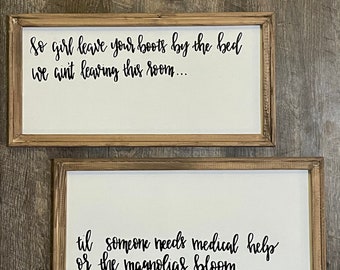 So girl leave your boots by the bed
we aint leaving this room...
til someone needs medical help
or the magnolias bloom